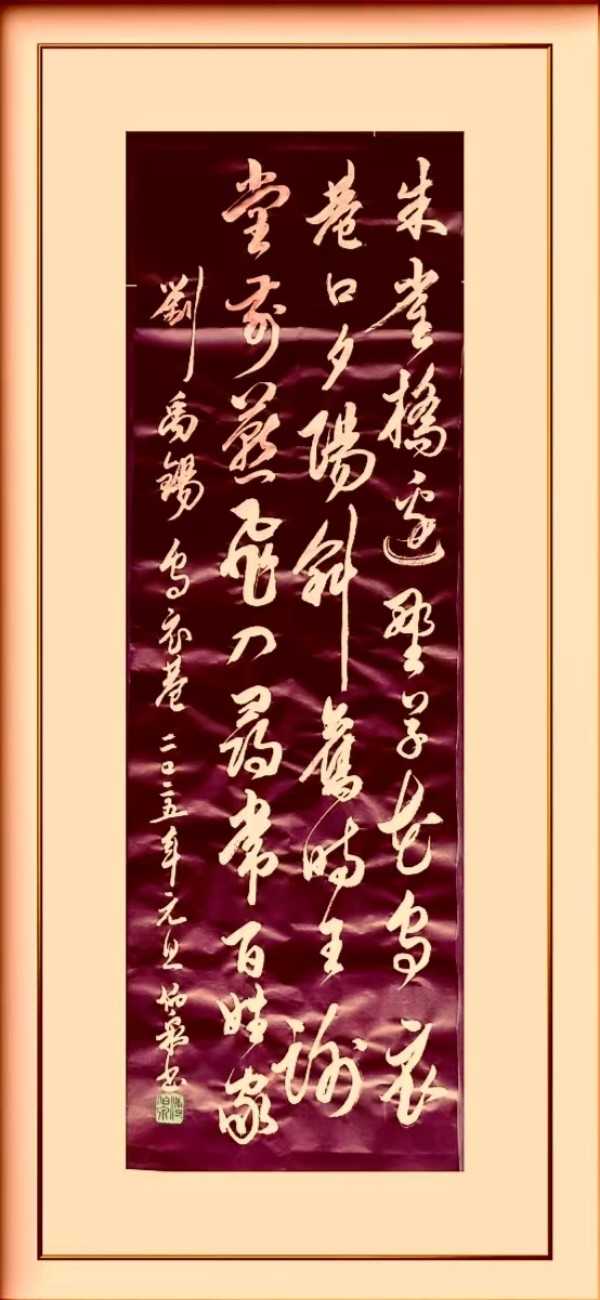 朱雀橋邊野草花烏衣
巷口夕陽斜舊時王謝
堂前燕飛入尋常百姓家
劉禹錫 烏衣巷 二〇二五年元旦 书